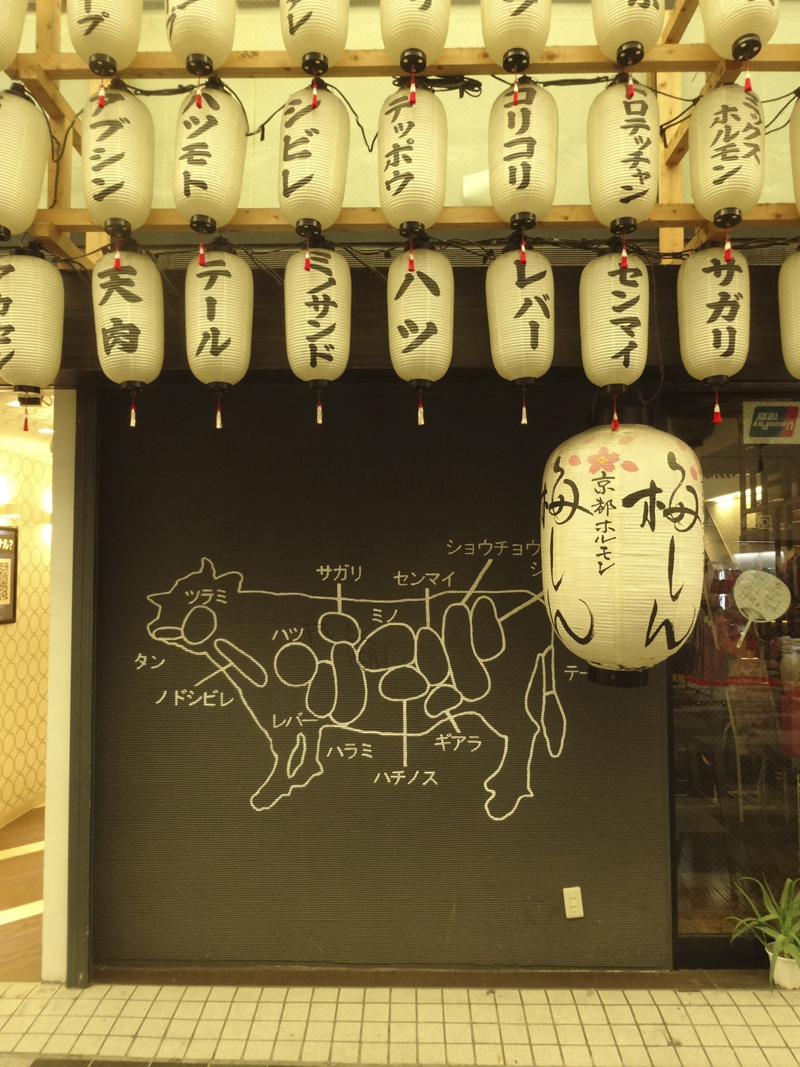 アブシン
ハツモト
シビレ
テッポウ
コリコリ
コロテッチャン
ミックスホルモン
天肉
テール
ミノサンド
ハツ
レバー
センマイ
サガリ
梅しん
京都ホルモン
梅しん
UnionPay
银联
ショウチョウ
サガリ
センマイ
ツラミ
ミノ
ハツ
タン
ノドシビレ
レバー
ハラミ
ギアラ
ハチノス